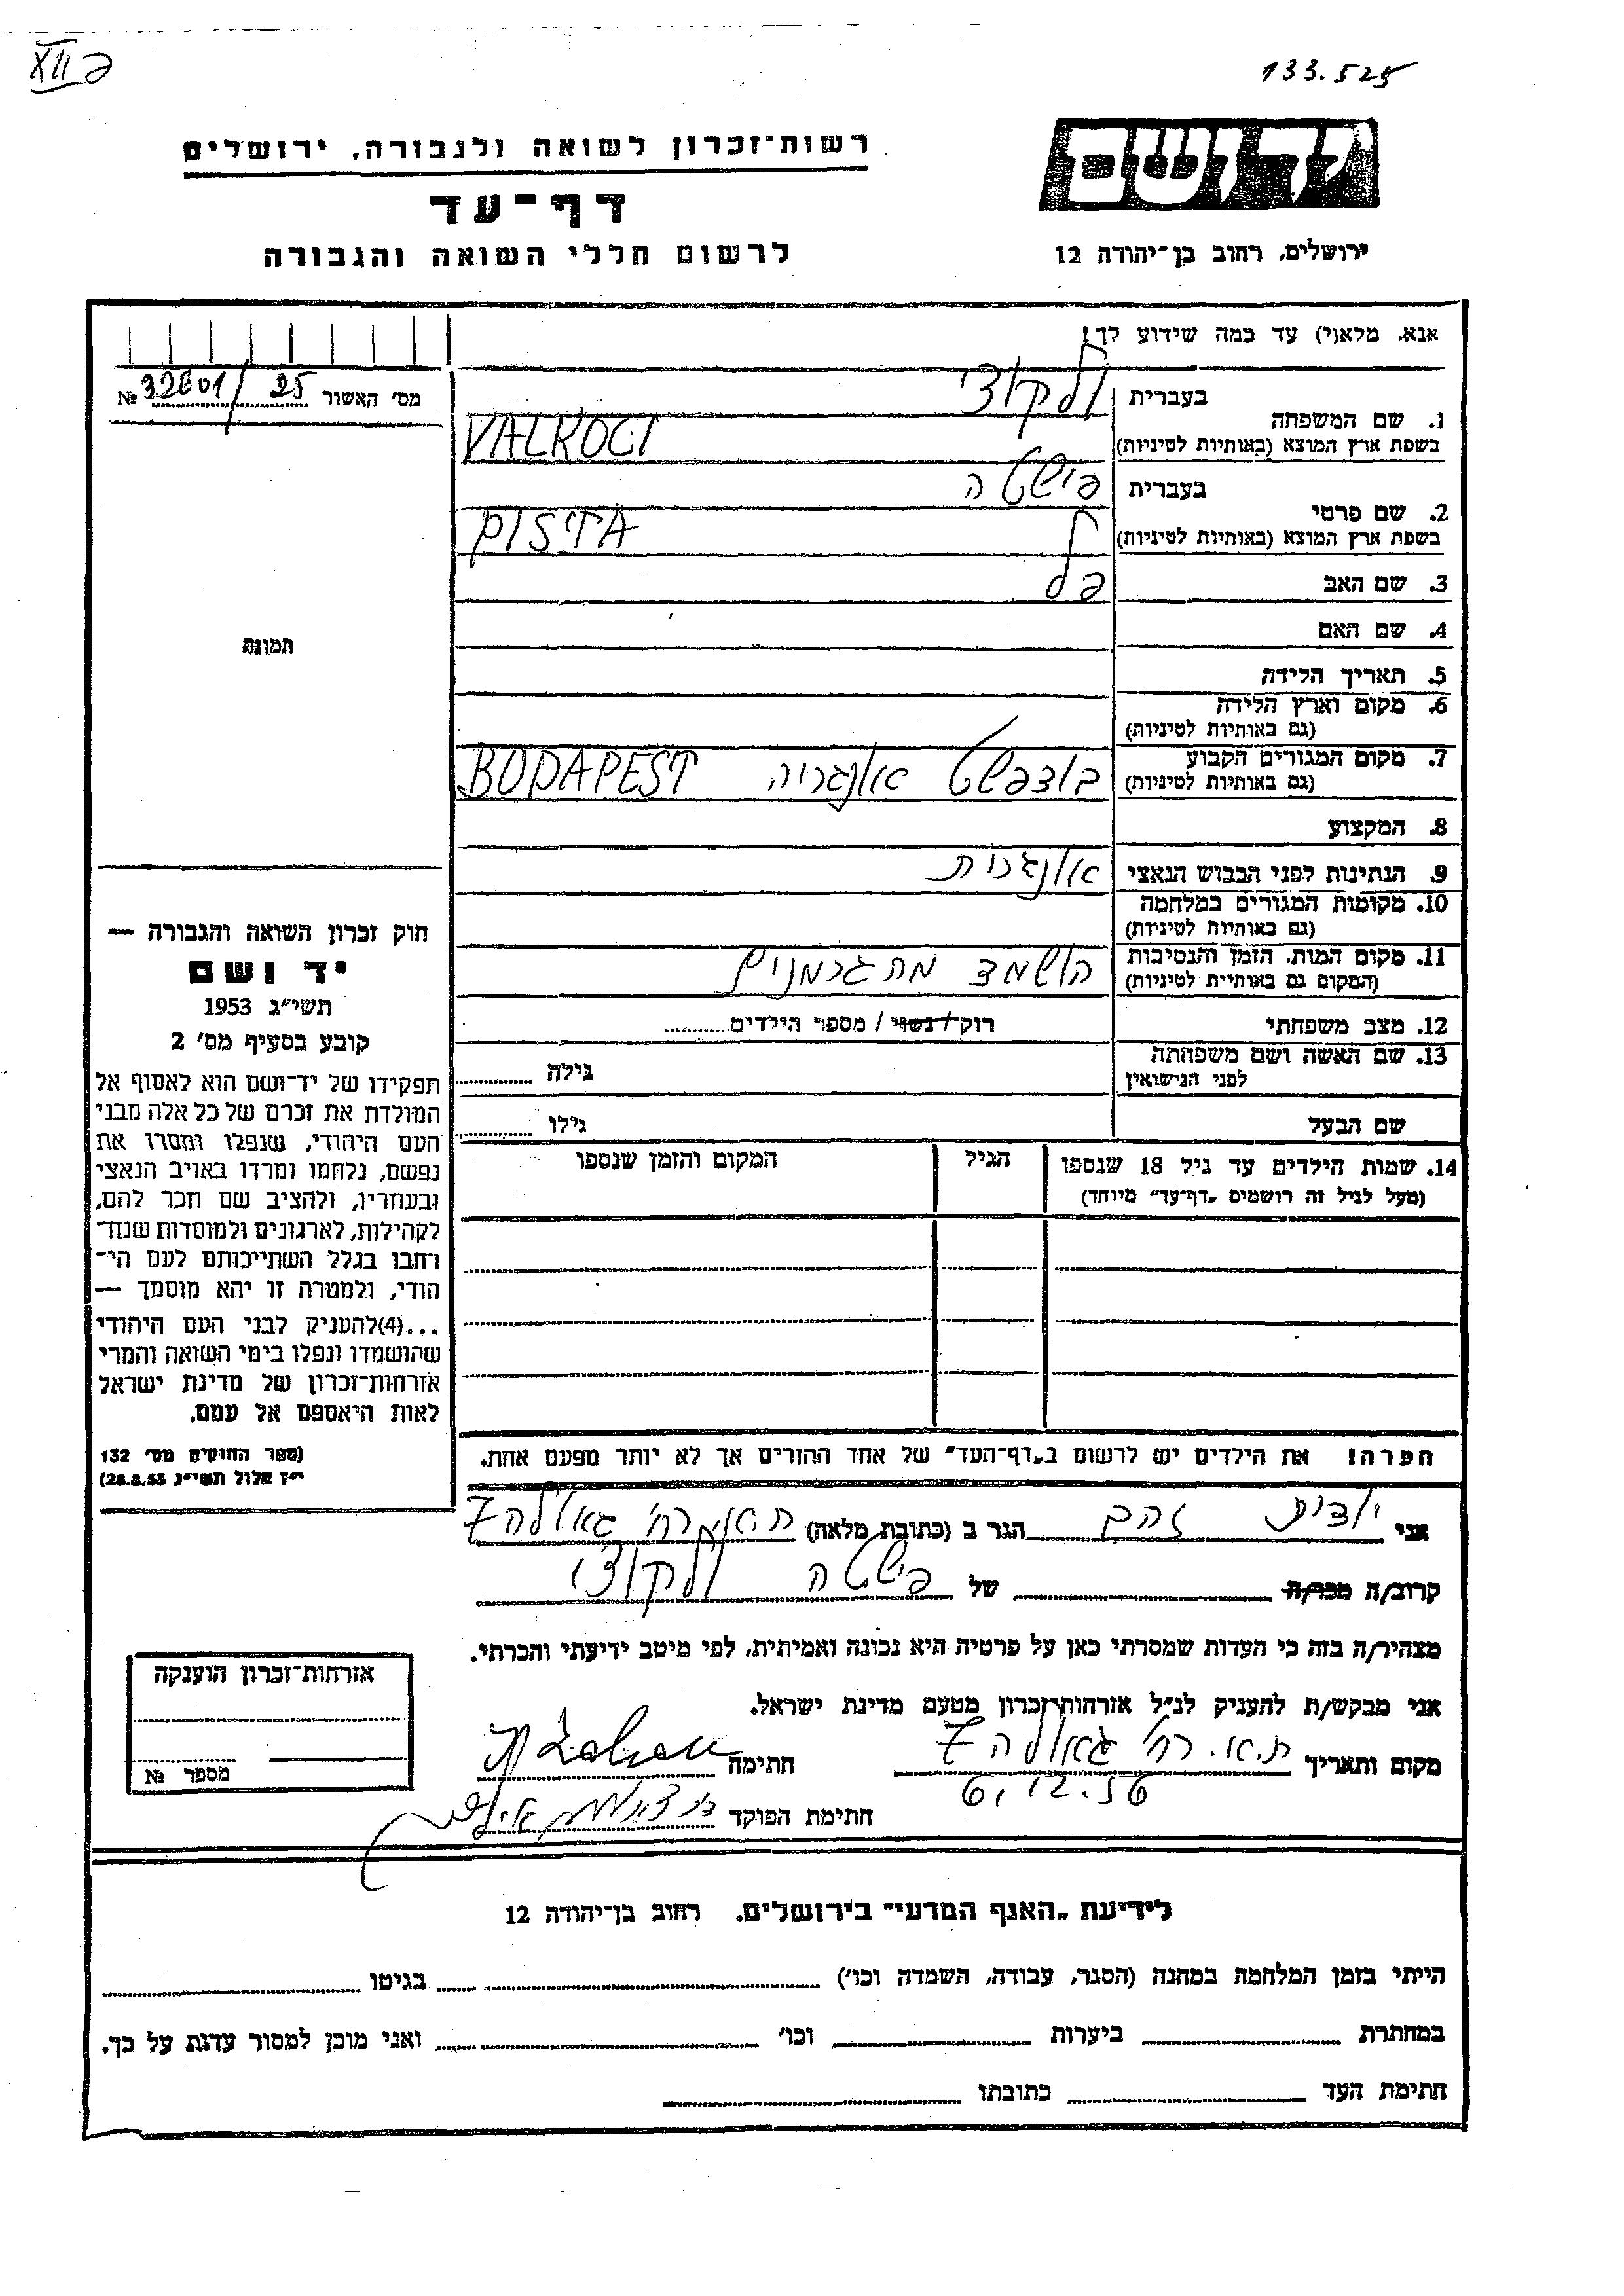 XII פ
133.525
יד ושם
ירושלים, רחוב בן-יהודה 12
רשות-זכרון לשואה ולגבורה, ירושלים
דף-עד
לרשום חללי השואה והגבורה
אנא, מלא(י) עד כמה שידוע לך!
מס' האשור 32601/25 №
1. שם המשפחה
בעברית ולקוצי
בשפת ארץ המוצא (באותיות לטיניות) VALKOCI
2. שם פרטי
בעברית פישטה
בשפת ארץ המוצא (באותיות לטיניות) PISTA
3. שם האב פל
4. שם האם
5. תאריך הלידה
6. מקום וארץ הלידה
(גם באותיות לטיניות)
7. מקום המגורים הקבוע בודפשט אונגריה BUDAPEST
(גם באותיות לטיניות)
8. המקצוע
9. הנתינות לפני הכבוש הנאצי אונגרית
10. מקומות המגורים במלחמה
(גם באותיות לטיניות)
11. מקום המות, הזמן והנסיבות הושמד מהגרמנים
(המקום גם באותיות לטיניות)
12. מצב משפחתי רוק/נשוי/ מספר הילדים
13. שם האשה ושם משפחתה
לפני הנישואין
גילה
שם הבעל
גילו
14. שמות הילדים עד גיל 18 שנספו
(מעל לגיל זה רושמים „דף-עד" מיוחד)
הגיל
המקום והזמן שנספו
תמונה
חוק זכרון השואה והגבורה —
יד ושם
תשי"ג 1953
קובע בסעיף מס' 2
תפקידו של יד-ושם הוא לאסוף אל
המולדת את זכרם של כל אלה מבני
העם היהודי, שנפלו ומסרו את
נפשם, נלחמו ומרדו באויב הנאצי
ובעוזריו, ולהציב שם וזכר להם,
לקהילות, לארגונים ולמוסדות שנח-
רחבו בגלל השתייכותם לעם הי-
הודי, ולמטרה זו יהא מוסמך —
...(4)להעניק לבני העם היהודי
שהושמדו ונפלו בימי השואה והמרי
אזרחות-זכרון של מדינת ישראל
לאות היאספם אל עמם.
(ספר החוקים מס' 132
י"ז אלול תשי"ג 28.8.53)
הערה! את הילדים יש לרשום ב„דף-העד" של אחד ההורים אך לא יותר מפעם אחת.
אני יודית זהב הגר ב (כתובת מלאה) ת.א. רח' גאולה 7
קרוב/ה מכר/ה של פישטה ולקוצי
מצהיר/ה בזה כי העדות שמסרתי כאן על פרטיה היא נכונה ואמיתית, לפי מיטב ידיעתי והכרתי.
אני מבקש/ת להעניק לנ"ל אזרחות-זכרון מטעם מדינת ישראל.
מקום ותאריך ת.א. רח' גאולה 7
6.12.56
חתימה
חתימת הפוקד
אזרחות-זכרון הוענקה
מספר №
לידיעת „האגף המדעי" בירושלים, רחוב בן-יהודה 12
הייתי בזמן המלחמה במחנה (הסגר, עבודה, השמדה וכו') בגיטו
במחתרת ביערות וכו' ואני מוכן למסור עדות על כך.
חתימת העד כתובתו